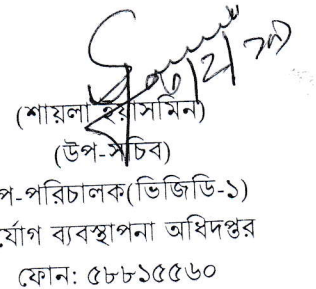 (শায়লা ইয়াসমিন)
(উপ-সচিব)
প-পরিচালক(ভিজিডি-১)
র্যোগ ব্যবস্থাপনা অধিদপ্তর
ফোন: ৫৮৮১৫৫৬০